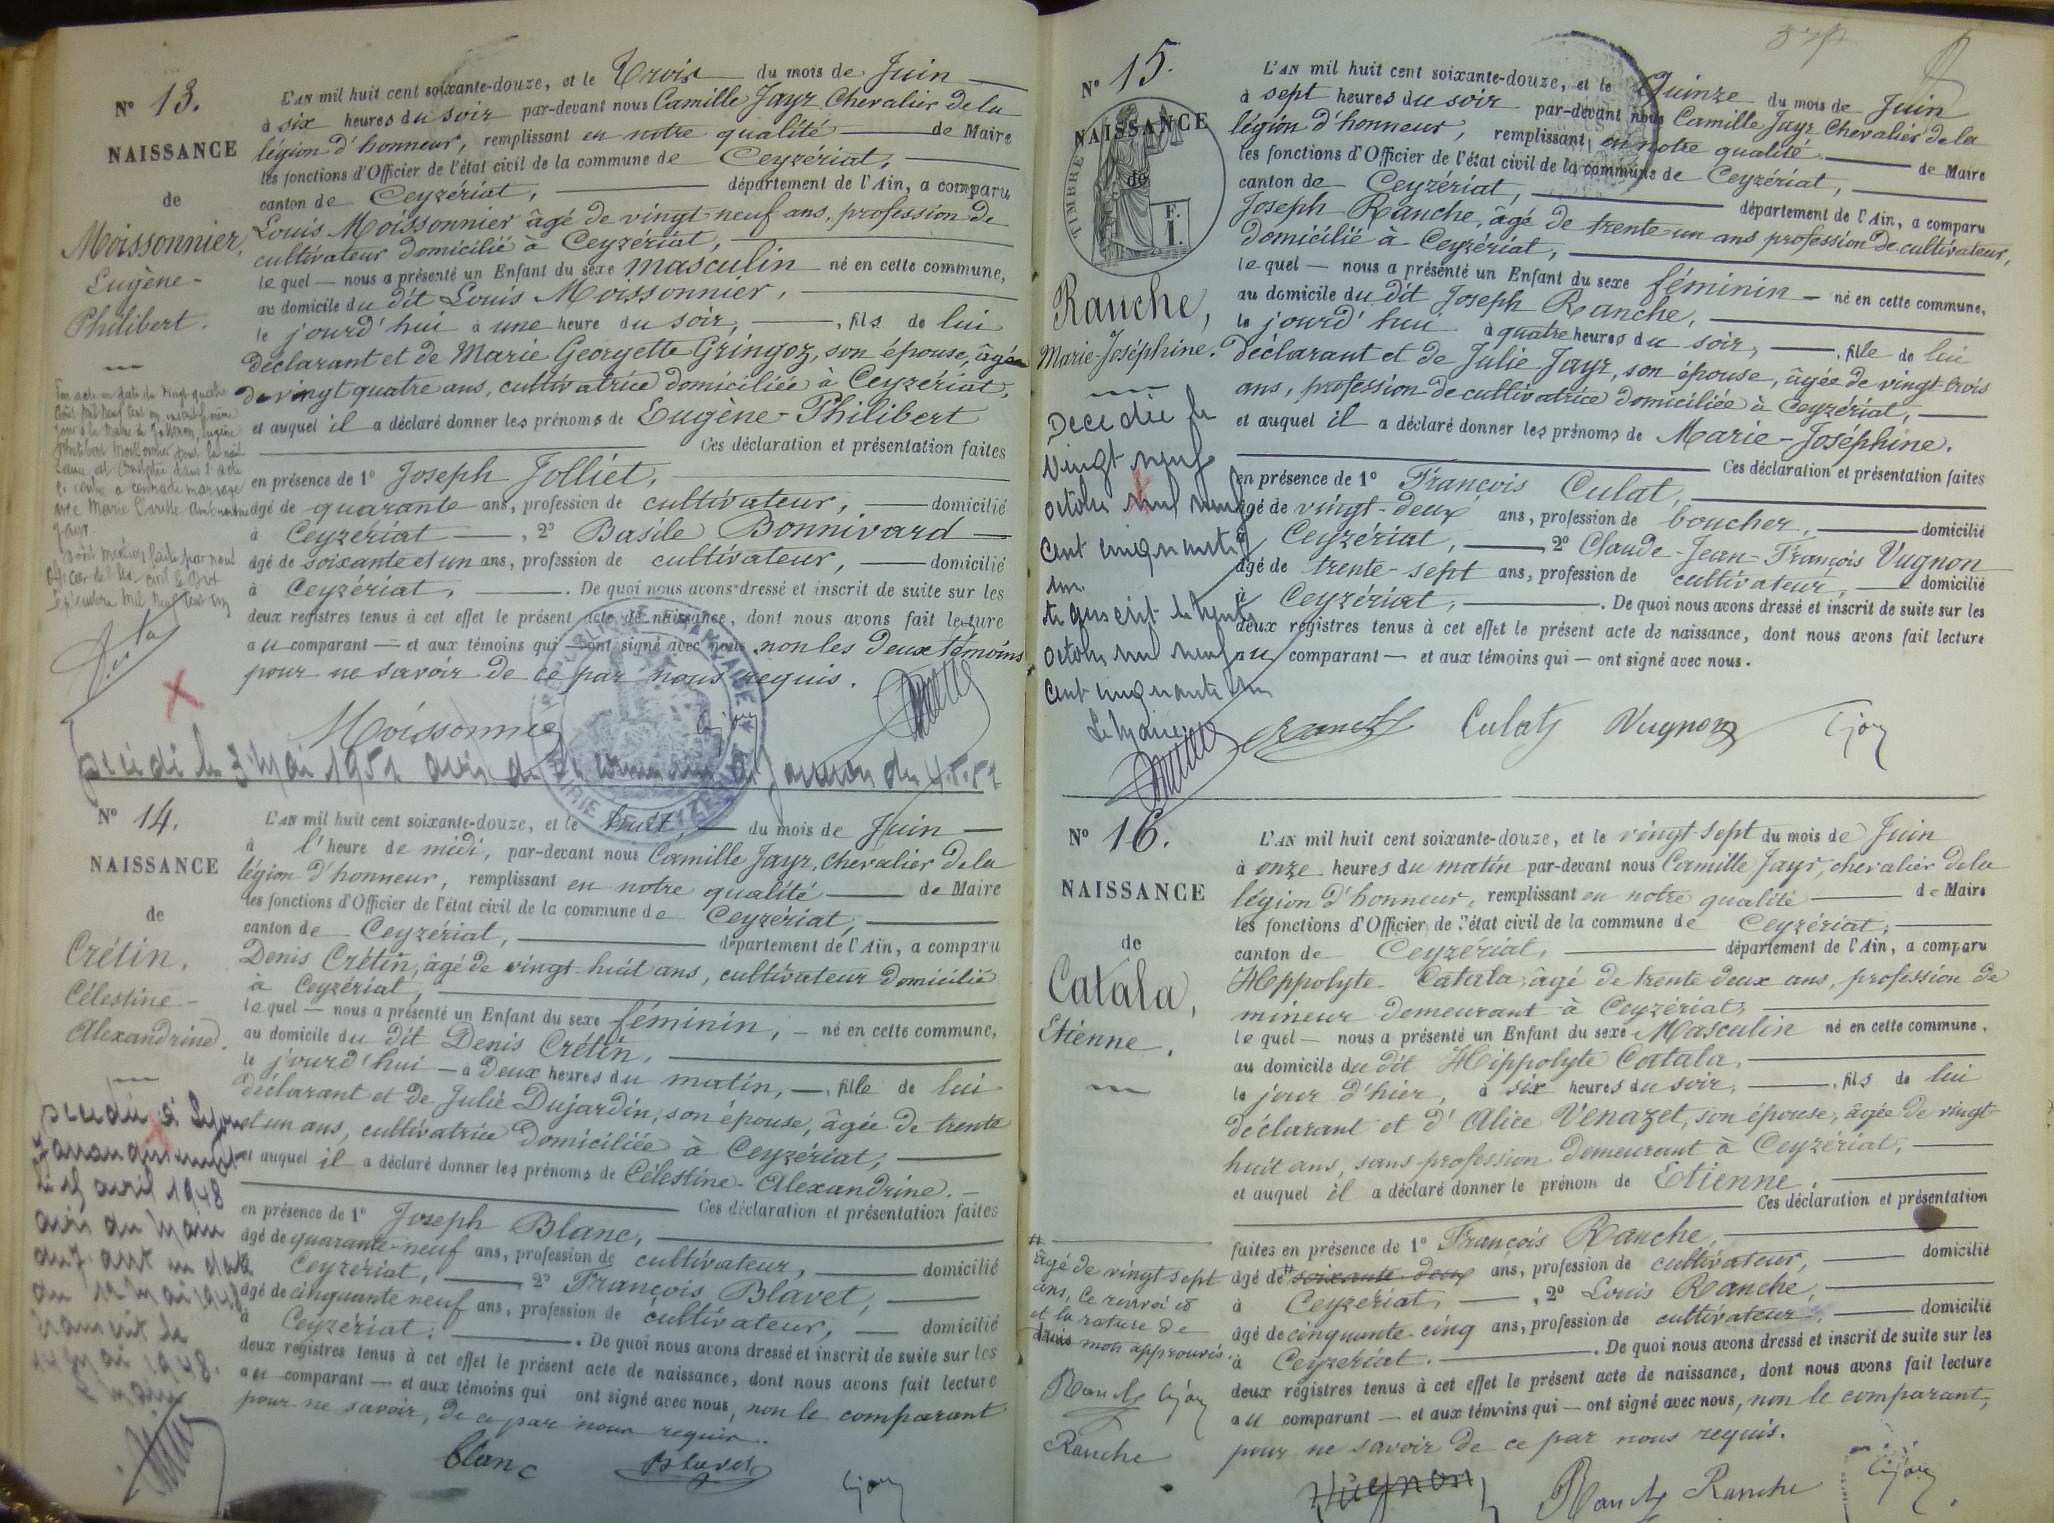 N° 13.
NAISSANCE
de
Moissonnier,
Eugène-
Philibert.
L'AN mil huit cent soixante-douze, et le Trois du mois de Juin
à six heures du soir par-devant nous Camille Jayr Chevalier de la
légion d'honneur, remplissant en notre qualité de Maire
les fonctions d'Officier de l'état civil de la commune de Ceyzériat,
canton de Ceyzériat, département de l'Ain, a comparu
Louis Moissonnier âgé de vingt neuf ans, profession de
cultivateur domicilié à Ceyzériat,
lequel — nous a présenté un Enfant du sexe masculin né en cette commune,
au domicile du dit Louis Moissonnier,
le jourd'hui à une heure du soir, fils de lui
déclarant et de Marie Georgette Gringoz, son épouse, âgée
de vingt quatre ans, cultivatrice domiciliée à Ceyzériat,
et auquel il a déclaré donner les prénoms de Eugène-Philibert
Ces déclaration et présentation faites
en présence de 1° Joseph Jolliet,
âgé de quarante ans, profession de cultivateur, domicilié
à Ceyzériat, 2° Basile Bonnivard
âgé de soixante et un ans, profession de cultivateur, domicilié
à Ceyzériat. De quoi nous avons dressé et inscrit de suite sur les
deux registres tenus à cet effet le présent acte de naissance, dont nous avons fait lecture
au comparant — et aux témoins qui — ont signé avec nous, non les deux témoins
pour ne savoir de ce par nous requis.
Moissonnier
CJayr
Décédé le 3 Mai 1951
N° 14.
NAISSANCE
de
Crétin,
Célestine-
Alexandrine.
L'AN mil huit cent soixante-douze, et le huit, du mois de Juin
à l'heure de midi, par-devant nous Camille Jayr, chevalier de la
légion d'honneur, remplissant en notre qualité de Maire
les fonctions d'Officier de l'état civil de la commune de Ceyzériat,
canton de Ceyzériat, département de l'Ain, a comparu
Denis Crétin, âgé de vingt huit ans, cultivateur domicilié
à Ceyzériat,
lequel — nous a présenté un Enfant du sexe féminin, — né en cette commune,
au domicile du dit Denis Crétin,
le jourd'hui — à deux heures du matin, —, fille de lui
déclarant et de Julie Dujardin, son épouse, âgée de trente
et un ans, cultivatrice domiciliée à Ceyzériat,
et auquel il a déclaré donner les prénoms de Célestine-Alexandrine.
Ces déclaration et présentation faites
en présence de 1° Joseph Blanc,
âgé de quarante-neuf ans, profession de cultivateur, domicilié
à Ceyzériat, 2° François Blavet,
âgé de cinquante neuf ans, profession de cultivateur, domicilié
à Ceyzériat. De quoi nous avons dressé et inscrit de suite sur les
deux registres tenus à cet effet le présent acte de naissance, dont nous avons fait lecture
au comparant — et aux témoins qui ont signé avec nous, non le comparant
pour ne savoir, de ce par nous requis.
blanc Blavet CJayr
Décédée à Lyon
7 arrondissement
avril 1948
avis du Maire
du 7 art en date
du 12 Mai 1948
transcrit le
Mai 1948.
N° 15.
NAISSANCE
de
TIMBRE
F.
1.
Ranche,
Marie-Joséphine.
L'AN mil huit cent soixante-douze, et le Quinze du mois de Juin
à sept heures du soir par-devant nous Camille Jayr Chevalier de la
légion d'honneur, remplissant en notre qualité de Maire
les fonctions d'Officier de l'état civil de la commune de Ceyzériat,
canton de Ceyzériat, département de l'Ain, a comparu
Joseph Ranche, âgé de trente-un ans profession de cultivateur,
domicilié à Ceyzériat,
lequel — nous a présenté un Enfant du sexe féminin — né en cette commune,
au domicile du dit Joseph Ranche,
le jourd'hui à quatre heures du soir, —, fille de lui
déclarant et de Julie Jayr, son épouse, âgée de vingt-trois
ans, profession de cultivatrice domiciliée à Ceyzériat,
et auquel il a déclaré donner les prénoms de Marie-Joséphine.
Ces déclaration et présentation faites
en présence de 1° François Culat,
âgé de vingt-deux ans, profession de boucher, domicilié
à Ceyzériat, 2° Claude-Jean-François Vugnon
âgé de trente-sept ans, profession de cultivateur, domicilié
à Ceyzériat, De quoi nous avons dressé et inscrit de suite sur les
deux registres tenus à cet effet le présent acte de naissance, dont nous avons fait lecture
au comparant — et aux témoins qui — ont signé avec nous.
Ranche Culat Vugnon CJayr
Décédée le
vingt neuf
octobre mil neuf
cent cinquante
un
transcrit le trente
octobre mil neuf
cent cinquante un
Le Maire
N° 16.
NAISSANCE
de
Catala,
Etienne.
L'AN mil huit cent soixante-douze, et le vingt sept du mois de Juin
à onze heures du matin par-devant nous Camille Jayr, chevalier de la
légion d'honneur, remplissant en notre qualité de Maire
les fonctions d'Officier de l'état civil de la commune de Ceyzériat,
canton de Ceyzériat, département de l'Ain, a comparu
Hippolyte Catala, âgé de trente deux ans, profession de
mineur demeurant à Ceyzériat,
lequel — nous a présenté un Enfant du sexe Masculin né en cette commune,
au domicile du dit Hippolyte Catala,
le jour d'hier, à six heures du soir, fils de lui
déclarant et d'Alice Venazet, son épouse, âgée de vingt
huit ans, sans profession demeurant à Ceyzériat,
et auquel il a déclaré donner le prénom de Etienne.
Ces déclaration et présentation
faites en présence de 1° François Ranche,
âgé de soixante deux ans, profession de cultivateur, domicilié
à Ceyzériat, 2° Louis Ranche,
âgé de cinquante cinq ans, profession de cultivateur, domicilié
à Ceyzériat. De quoi nous avons dressé et inscrit de suite sur les
deux registres tenus à cet effet le présent acte de naissance, dont nous avons fait lecture
au comparant — et aux témoins qui — ont signé avec nous, non le comparant,
pour ne savoir de ce par nous requis.
Vugnon Ranche Ranche CJayr
âgé de vingt sept
ans, Ce renvoi et
et la rature de
deux mots approuvés.
Ranche CJayr
Ranche